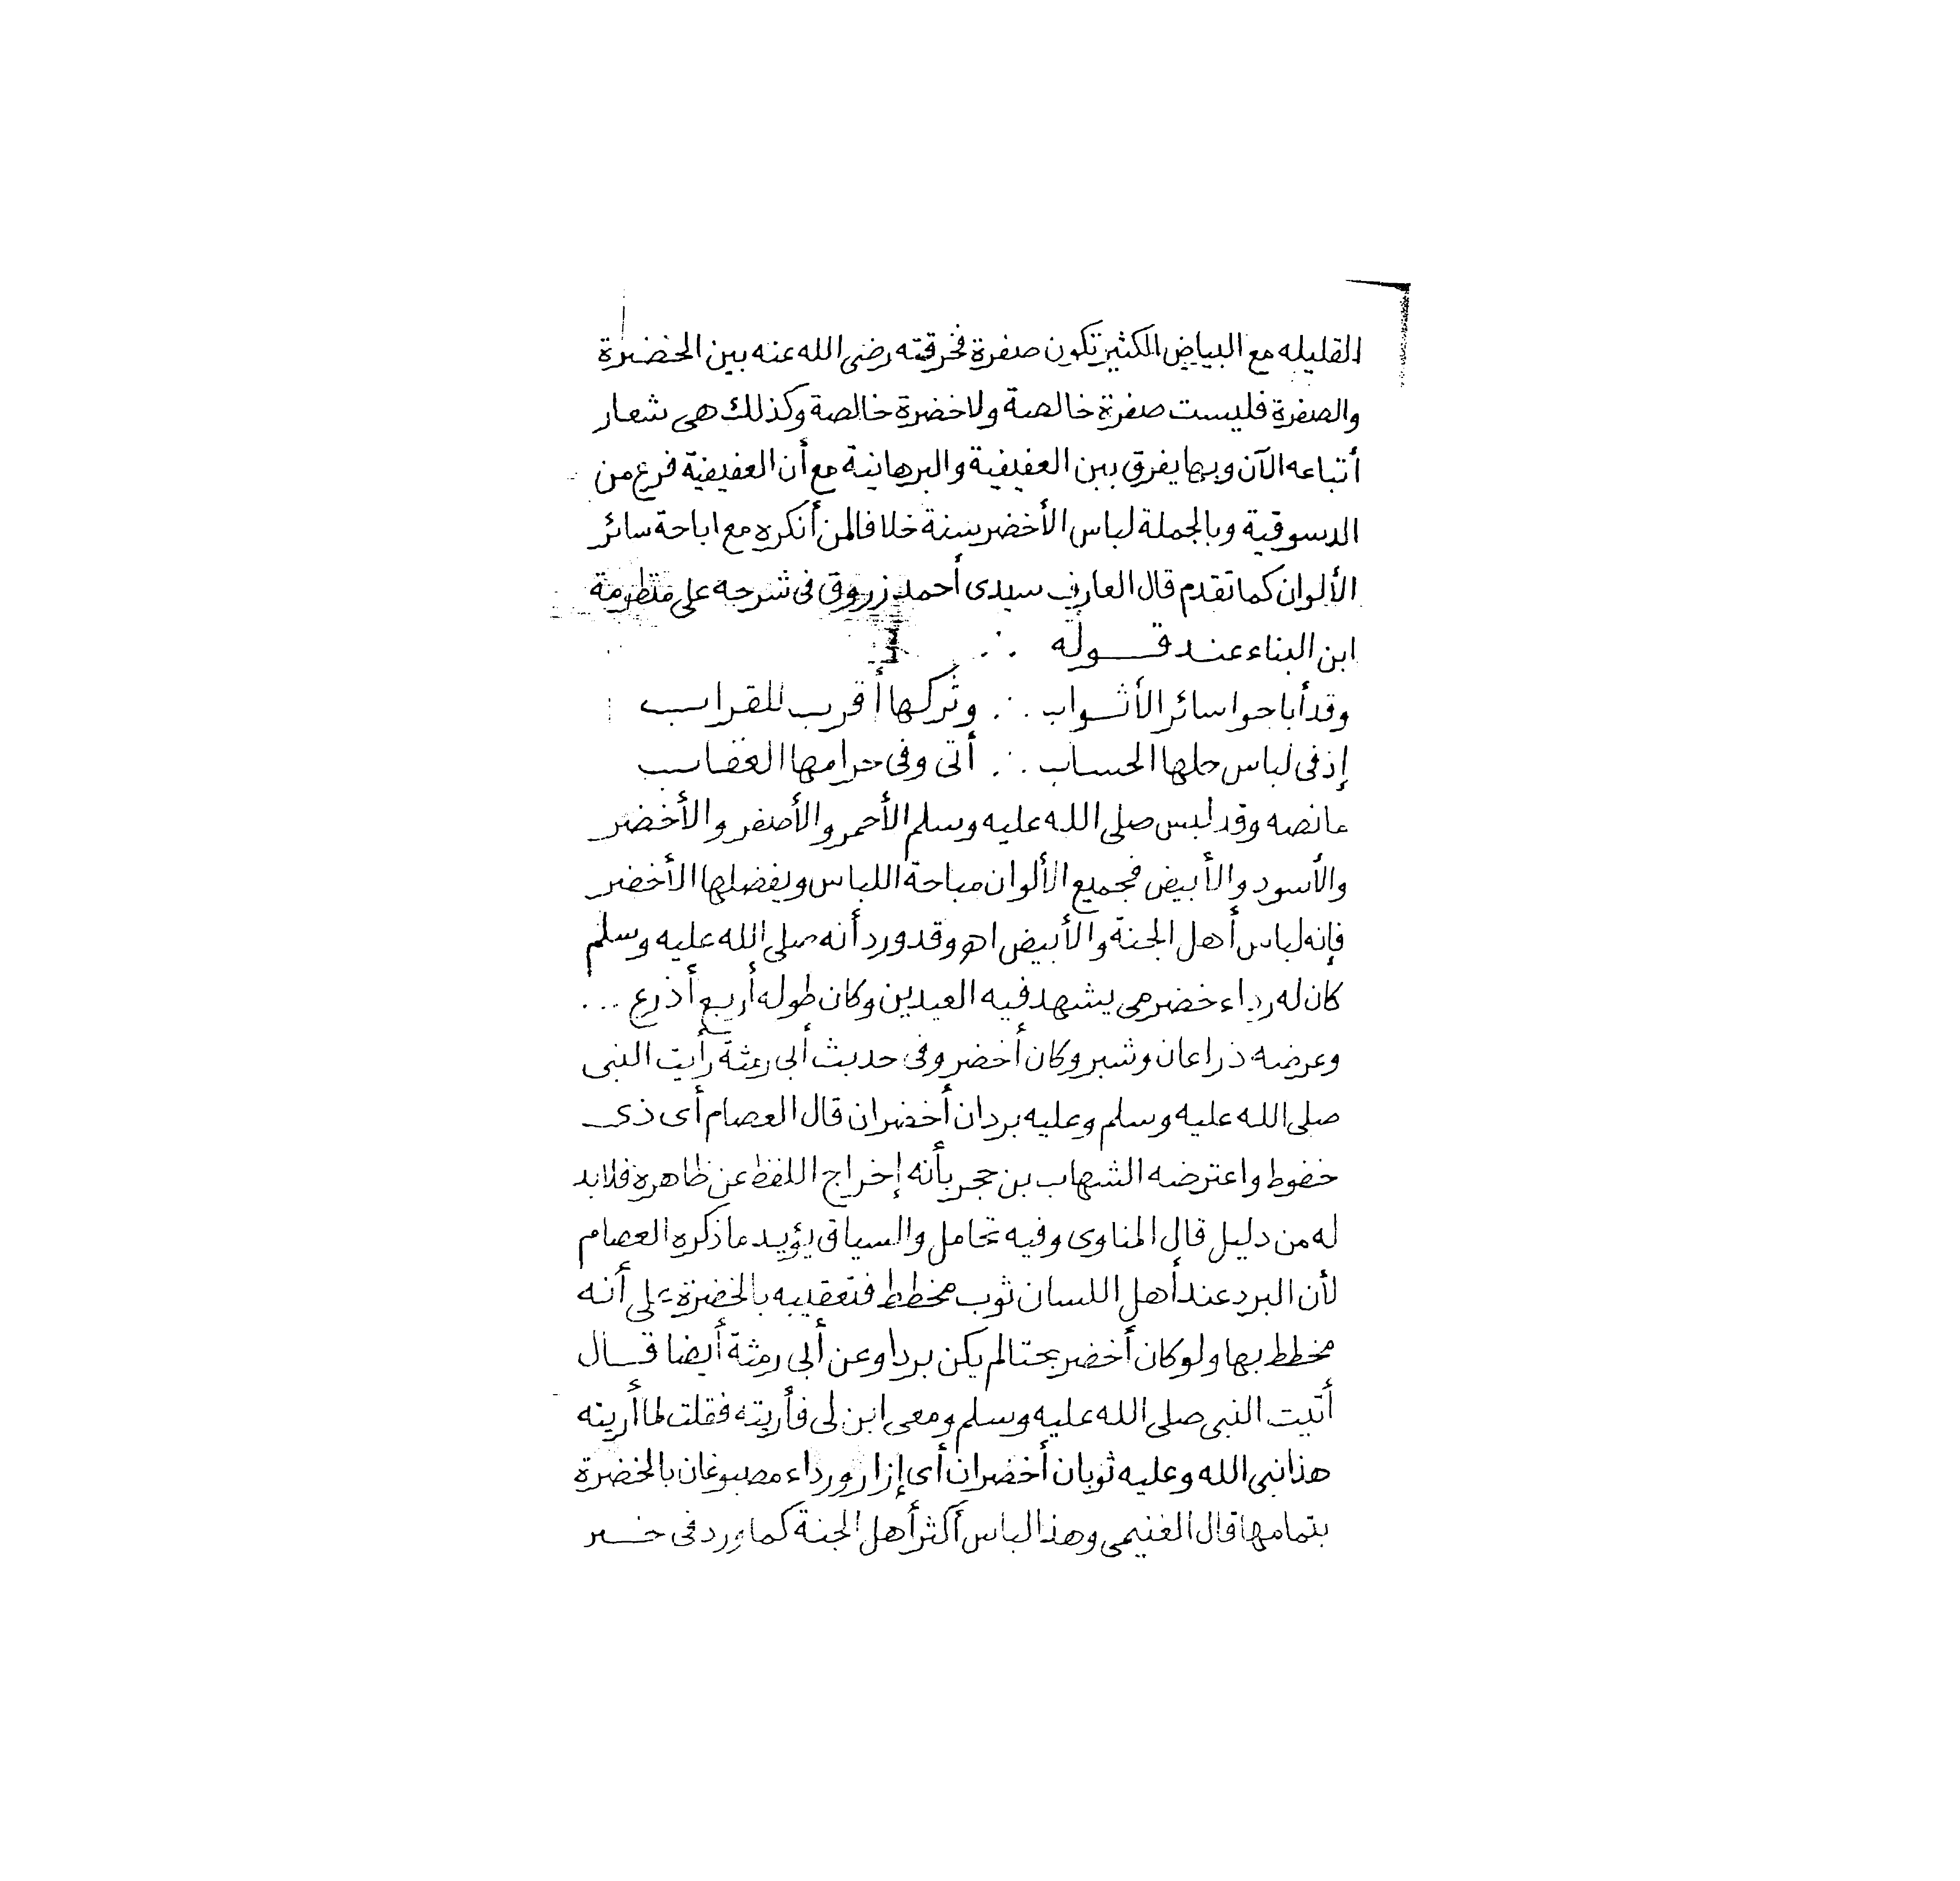 القليله مع البياض الكثير تكون صفرة فخرقته رضى الله عنه بين الخضرة
والصفرة فليست صفرة خالصة ولا خضرة خالصة وكذلك هى شعار
أتباعه الآن وبها يفرق بين العفيفية والبرهانية مع أن العفيفية فرع من
الدسوقية وبالجملة لباس الأخضر سنة خلافا لمن أنكره مع اباحة سائر
الألوان كما تقدم قال العارف سيدى أحمد زروق فى شرحه على منظومة
ابن البناء عند قوله ∴
وقد أباحوا سائر الأثواب ∴ وتركها أقرب للقراب
إذ فى لباس حلها الحساب ∴ أتى وفى حرامها العقاب
مانصه وقد لبس صلى الله عليه وسلم الأحمر والأصفر والأخضر
والأسود والأبيض فجميع الألوان مباحة اللباس ويفضلها الأخضر
فإنه لباس أهل الجنة والأبيض اهـ وقد ورد أنه صلى الله عليه وسلم
كان له رداء خضرمى يشهد فيه العيدين وكان طوله أربع أذرع ...
وعرضه ذراعان وشبر وكان أخضر وفى حديث أبى رمثة رأيت النبى
صلى الله عليه وسلم وعليه بردان أخضران قال العصام أى ذى
خفوط واعترضه الشهاب بن حجر بأنه إخراج اللفظ عن ظاهره فلابد
له من دليل قال المناوى وفيه تحامل والسياق يؤيد ما ذكره العصام
لأن البرد عند أهل اللسان ثوب مخطط فتعقيبه بالخضرة على أنه
مخطط بها ولو كان أخضر بحتا لم يكن بردا وعن أبى رمثة أيضا قال
أتيت النبى صلى الله عليه وسلم ومعى ابن لى فأريته فقلت لما أريته
هذا نبى الله وعليه ثوبان أخضران أى إزار ورداء مصبوغان بالخضرة
بتمامها قال الغنيمى وهذا لباس أكثر أهل الجنة كما ورد فى خبر